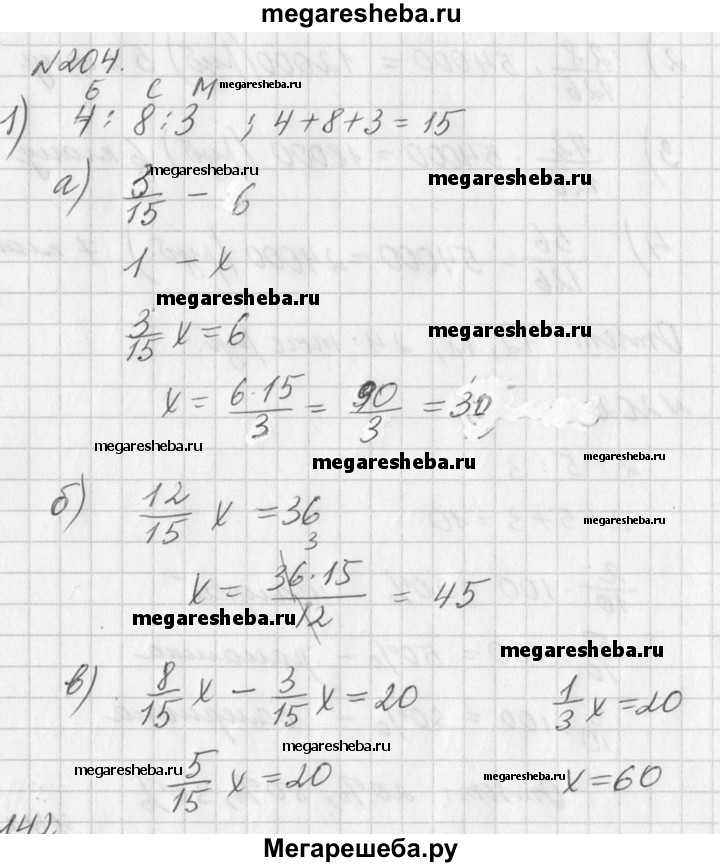 megaresheba.ru
№204.
Б С М megaresheba.ru
1) 4 : 8 : 3 ; 4+8+3=15
megaresheba.ru
а) 3/15 - 6 megaresheba.ru
1 - x
megaresheba.ru
3/15 x = 6 megaresheba.ru
x = 6·15/3 = 90/3 = 30
megaresheba.ru megaresheba.ru megaresheba.ru
б) 12/15 x = 36 megaresheba.ru
3
x = 36·15/12 = 45
megaresheba.ru
megaresheba.ru
в) 8/15 x - 3/15 x = 20 1/3 x = 20
megaresheba.ru
megaresheba.ru 5/15 x = 20 megaresheba.ru x = 60
142
Мегарешеба.ру